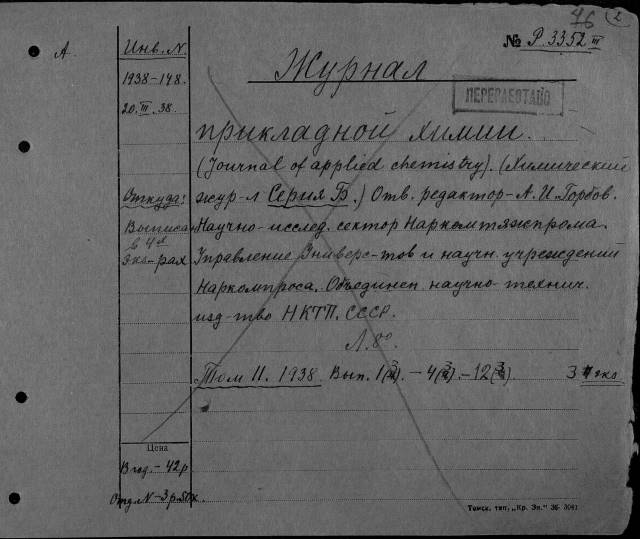 76 2
№ Р.3352 III
А
Инв. N.
1938-148
20. III. 38.
Журнал
ПЕРЕРАБОТАНО
прикладной химии.
(Journal of applied chemistry). (Химический
Откуда:
жур-л Серия Б.) Отв. редактор-А. И. Горбов.
Выписан
в 4х
экз-рах
Научно-исслед. сектор Наркомтяжпрома.
Управление Универс-тов и научн. учреждений
Наркомпроса. Объединен. научно-технич.
изд-тво НКТП. СССР.
Л. 8º.
Том 11. 1938. Вып. 1(3). – 4(3). – 12(3). 3 экз
Цена
В год. – 42 р.
Отд. N – 3 р. 50 к.
Томск, тип. „Кр. Зн." 36- 3041